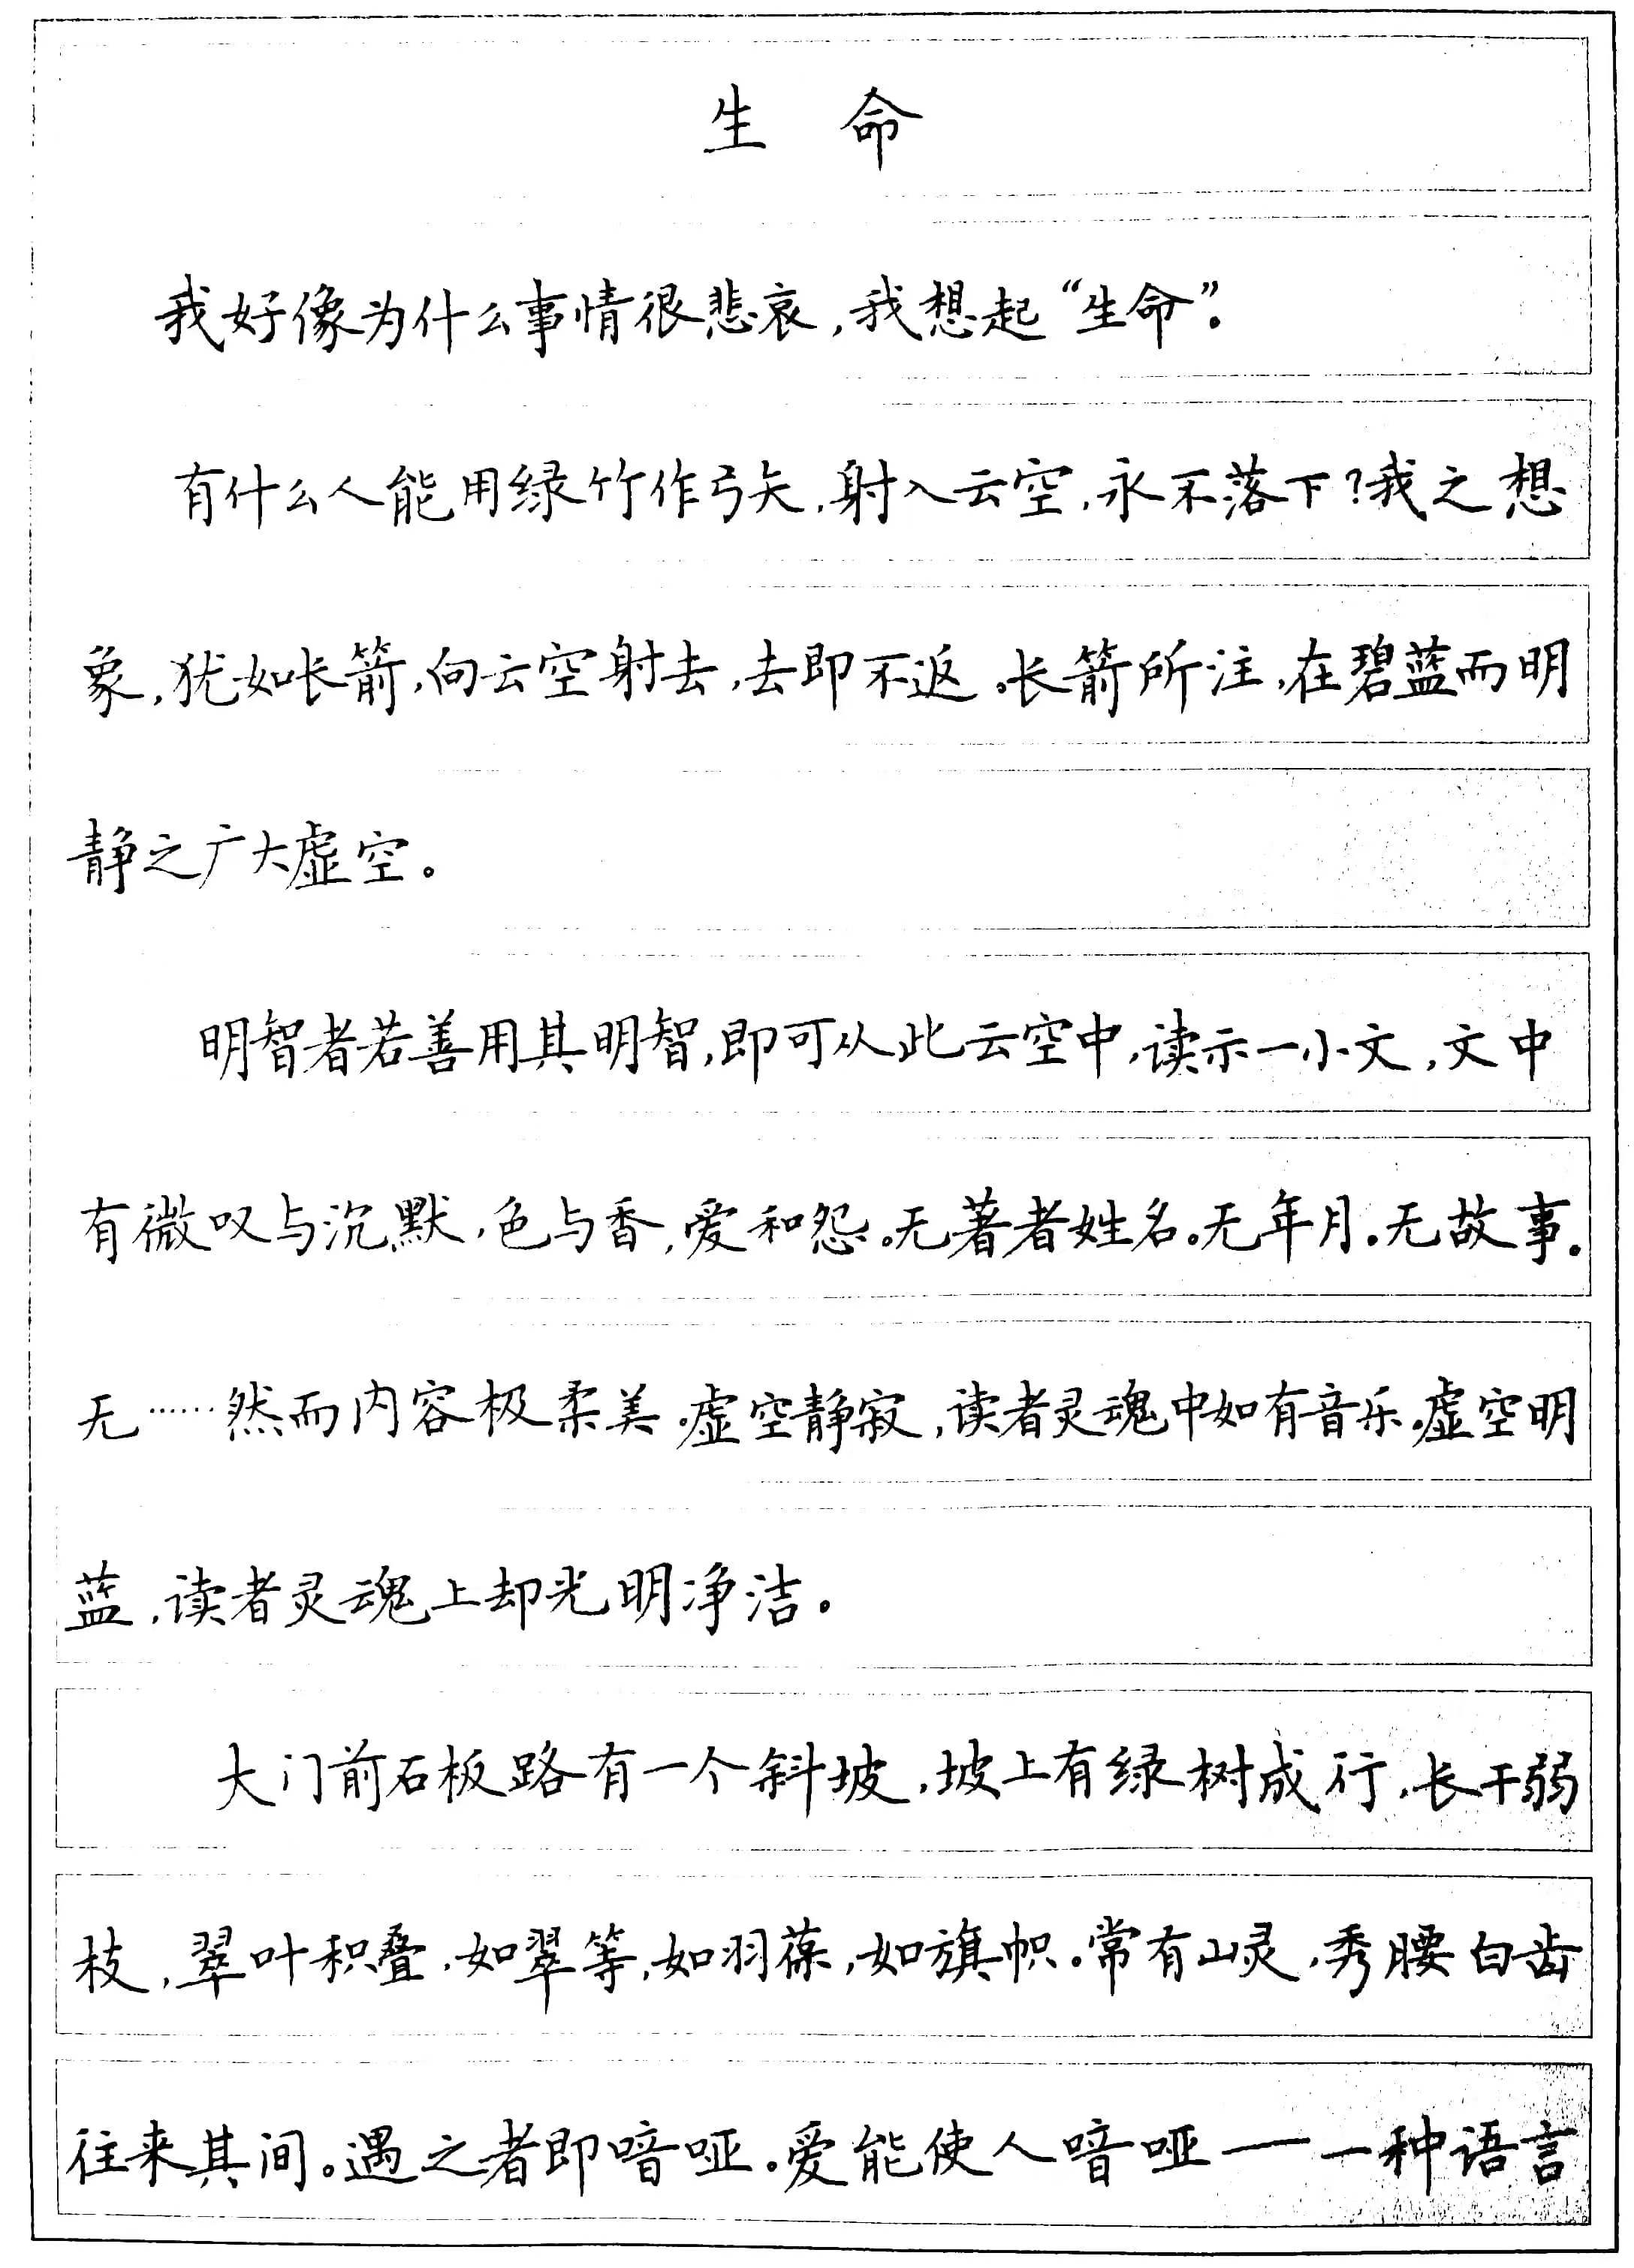 生 命
我好像为什么事情很悲哀，我想起“生命”。
有什么人能用绿竹作弓矢，射入云空，永不落下？我之想
象，犹如长箭，向云空射去，去即不返。长箭所注，在碧蓝而明
静之广大虚空。
明智者若善用其明智，即可从此云空中，读示一小文，文中
有微叹与沉默，色与香，爱和怨。无著者姓名。无年月。无故事。
无……然而内容极柔美。虚空静寂，读者灵魂中如有音乐。虚空明
蓝，读者灵魂上却光明净洁。
大门前石板路有一个斜坡，坡上有绿树成行，长干弱
枝，翠叶积叠，如翠等，如羽葆，如旗帜。常有山灵，秀腰白齿
往来其间。遇之者即喑哑。爱能使人喑哑——一种语言